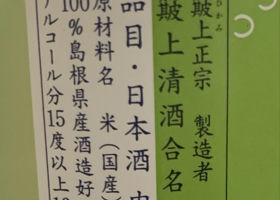 ひかみ
簸上正宗 製造者
簸上清酒合名
品目・日本酒
原材料名 米(国産)
100%島根県産酒造好
アルコール分15度以上